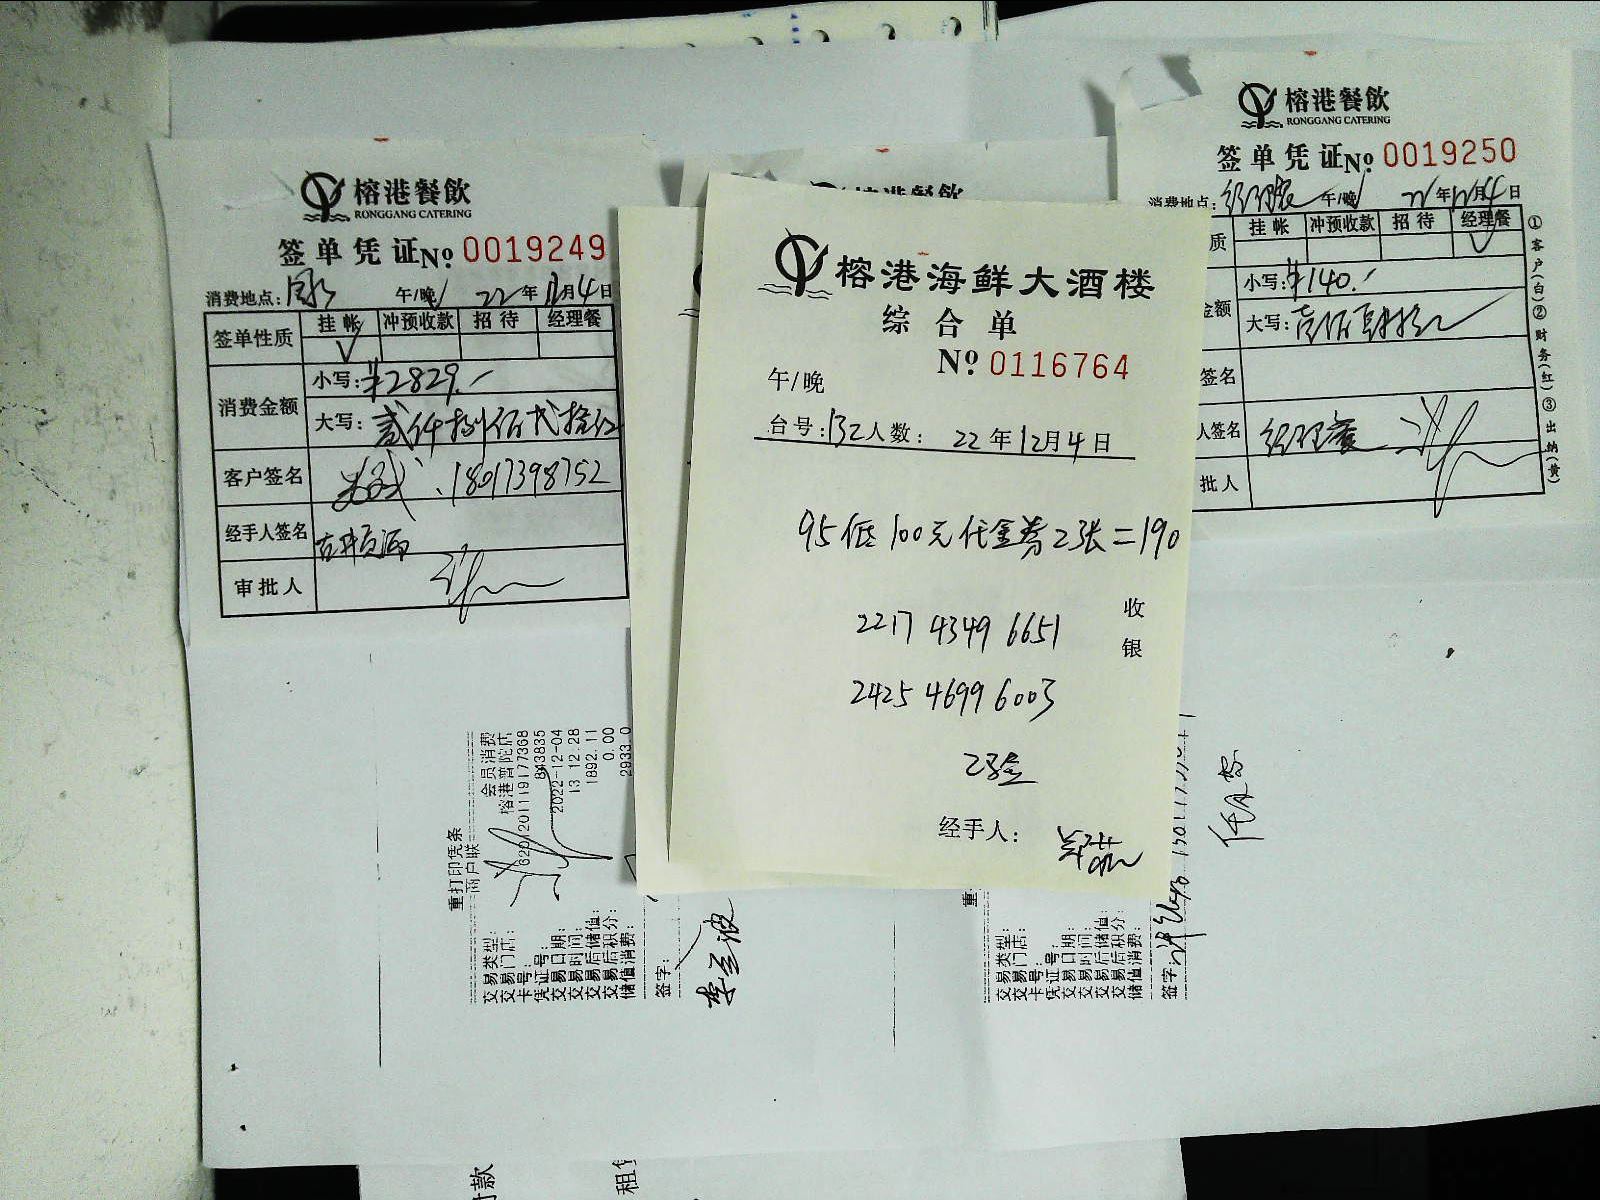 榕港餐飲
RONGGANG CATERING
签单凭证 No 0019249
消费地点: 午/晚 22年12月4日
签单性质 挂帐 冲预收款 招待 经理餐
√
消费金额 小写: ¥2829.-
大写: 贰仟捌佰贰拾
客户签名 18017398752
经手人签名
审批人
榕港餐飲
榕港海鲜大酒楼
综合单
No 0116764
午/晚
台号: 132 人数: 22年12月4日
95低100元代金券2张=190
2217 4349 6651
2425 4699 6003
2张
收银
经手人:
榕港餐飲
RONGGANG CATERING
签单凭证 No 0019250
消费地点: 午/晚 22年12月4日
质 挂帐 冲预收款 招待 经理餐
√
金额 小写: ¥140.-
大写: 壹佰肆拾
签名
人签名
批人
①客户(白)②财务(红)③出纳(黄)
重打印凭条
商户联
交易类型: 会员消费
交易门店: 榕港普陀店
卡号: 6201201119177368
凭证号: 843835
交易日期: 2022-12-04
交易时间: 13 12.28
交易后储值: 1892.11
交易后积分: 0.00
储值消费: 2933.0
签字:
重
交易类型:
交易门店:
卡号:
凭证号:
交易日期:
交易时间:
交易后储值:
交易后积分:
储值消费:
签字:
付款
租